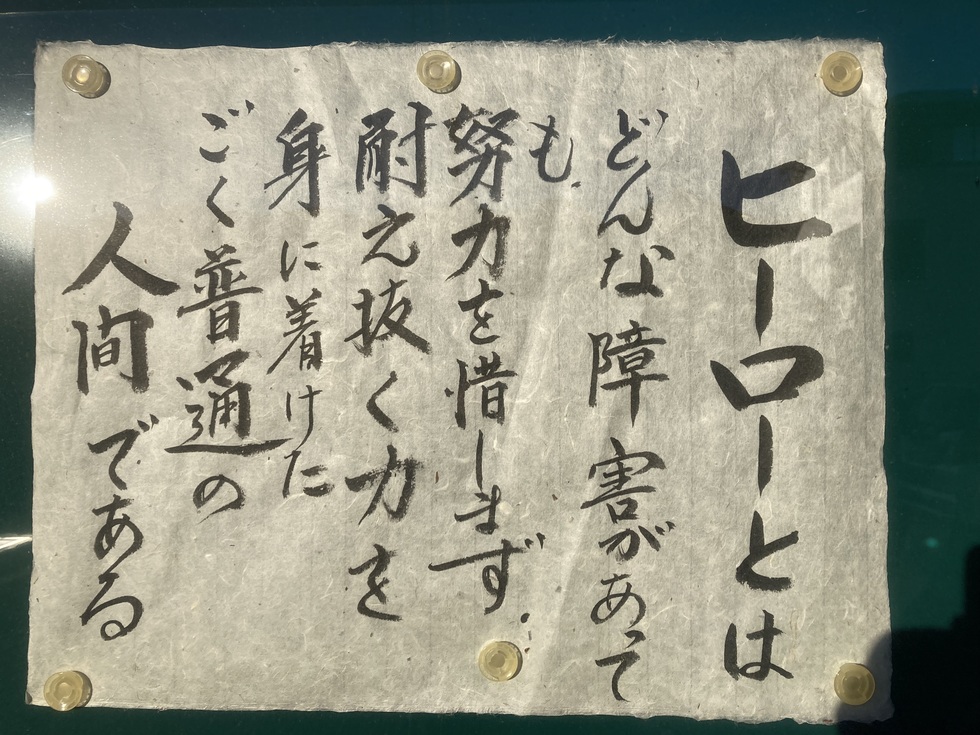 ヒーローとは
どんな障害があって
も
努力を惜しまず
耐え抜く力を
身に着けた
ごく普通の
人間である